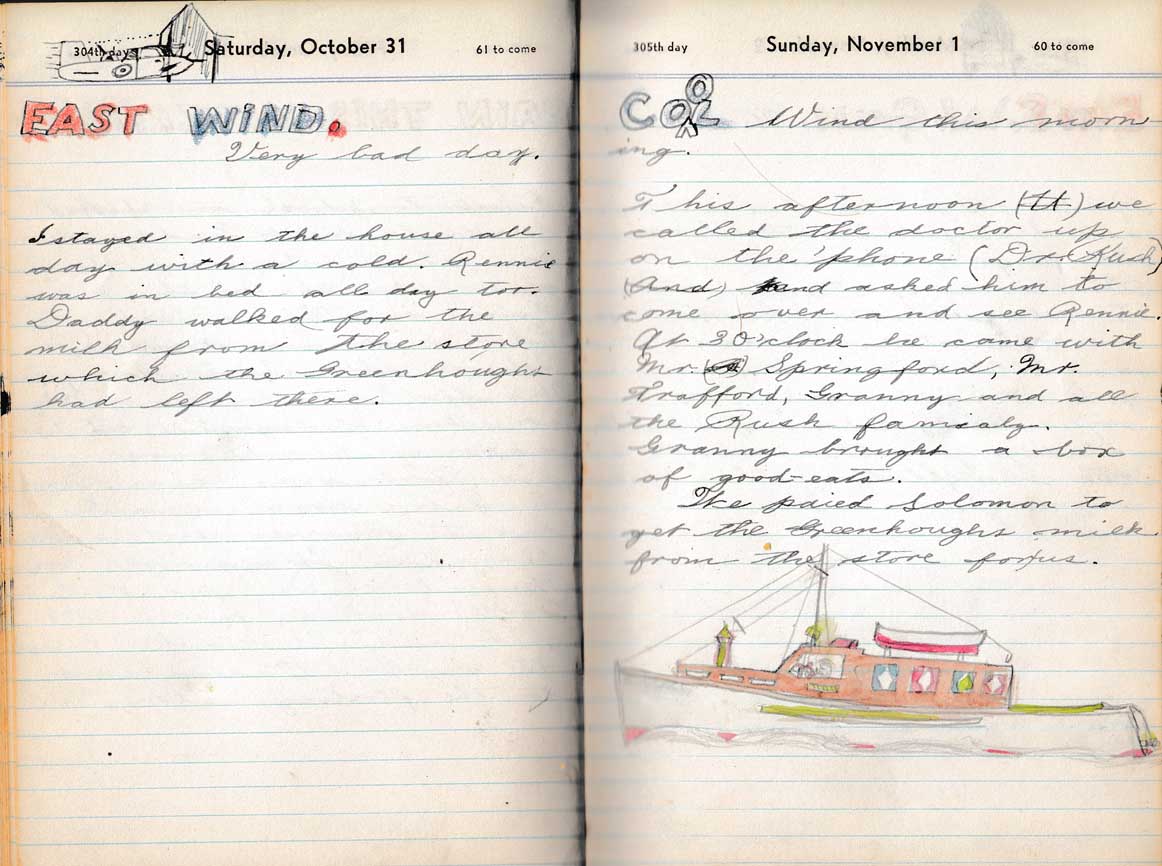 304th day Saturday, October 31 61 to come
EAST WIND.
Very bad day.
I stayed in the house all
day with a cold. Rennie
was in bed all day too.
Daddy walked for the
milk from the store
which the Greenhoughs
had left there.
305th day Sunday, November 1 60 to come
COOL Wind this morn-
ing.
This afternoon (It) we
called the doctor up
on the 'phone (Dr. Rush)
(And) and asked him to
come over and see Rennie.
At 3 O'clock he came with
Mr. Springford, Mr.
Trafford, Granny and all
the Rush familaly.
Granny brought a box
of good-eats.
We paied Solomon to
get the Greenhoughs milk
from the store for us.